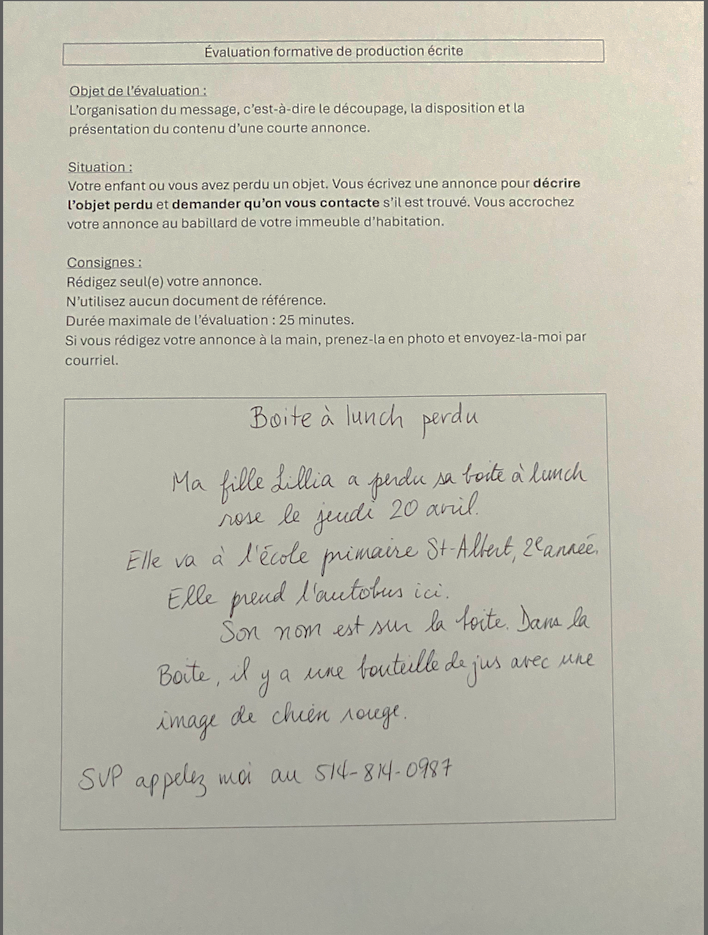 Évaluation formative de production écrite
Objet de l'évaluation :
L'organisation du message, c'est-à-dire le découpage, la disposition et la
présentation du contenu d'une courte annonce.
Situation :
Votre enfant ou vous avez perdu un objet. Vous écrivez une annonce pour décrire
l'objet perdu et demander qu'on vous contacte s'il est trouvé. Vous accrochez
votre annonce au babillard de votre immeuble d'habitation.
Consignes :
Rédigez seul(e) votre annonce.
N'utilisez aucun document de référence.
Durée maximale de l'évaluation : 25 minutes.
Si vous rédigez votre annonce à la main, prenez-la en photo et envoyez-la-moi par
courriel.
Boite à lunch perdu
Ma fille Lillia a perdu sa boite à lunch
rose le jeudi 20 avril.
Elle va à l'école primaire St-Albert, 2e année.
Elle prend l'autobus ici.
Son nom est sur la boite. Dans la
Boite, il y a une bouteille de jus avec une
image de chien rouge.
SVP appelez moi au 514-814-0987